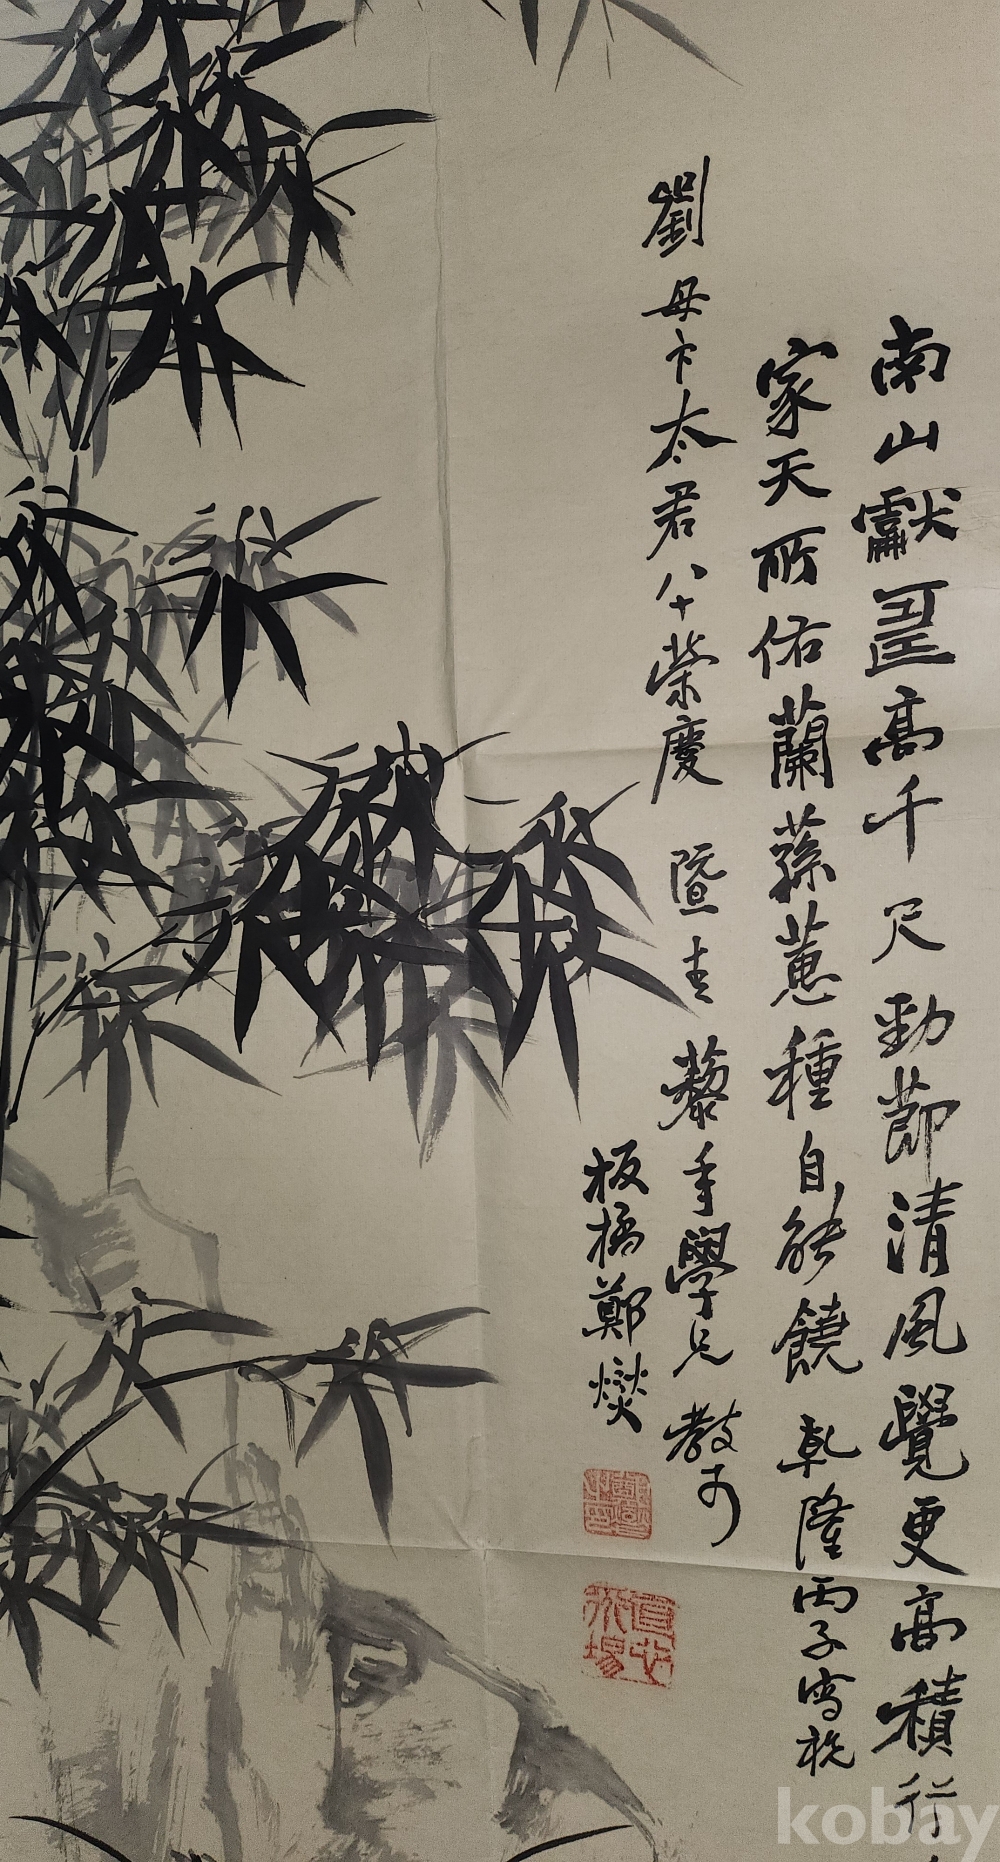 南山獻壽高千尺勁節清風覺更高積行
家天所佑蘭蓀蕙種自能饒 乾隆丙子寫祝
劉母卞太君八十榮慶 暨
年學兄 教可
板橋鄭燮
直心道場
kobay